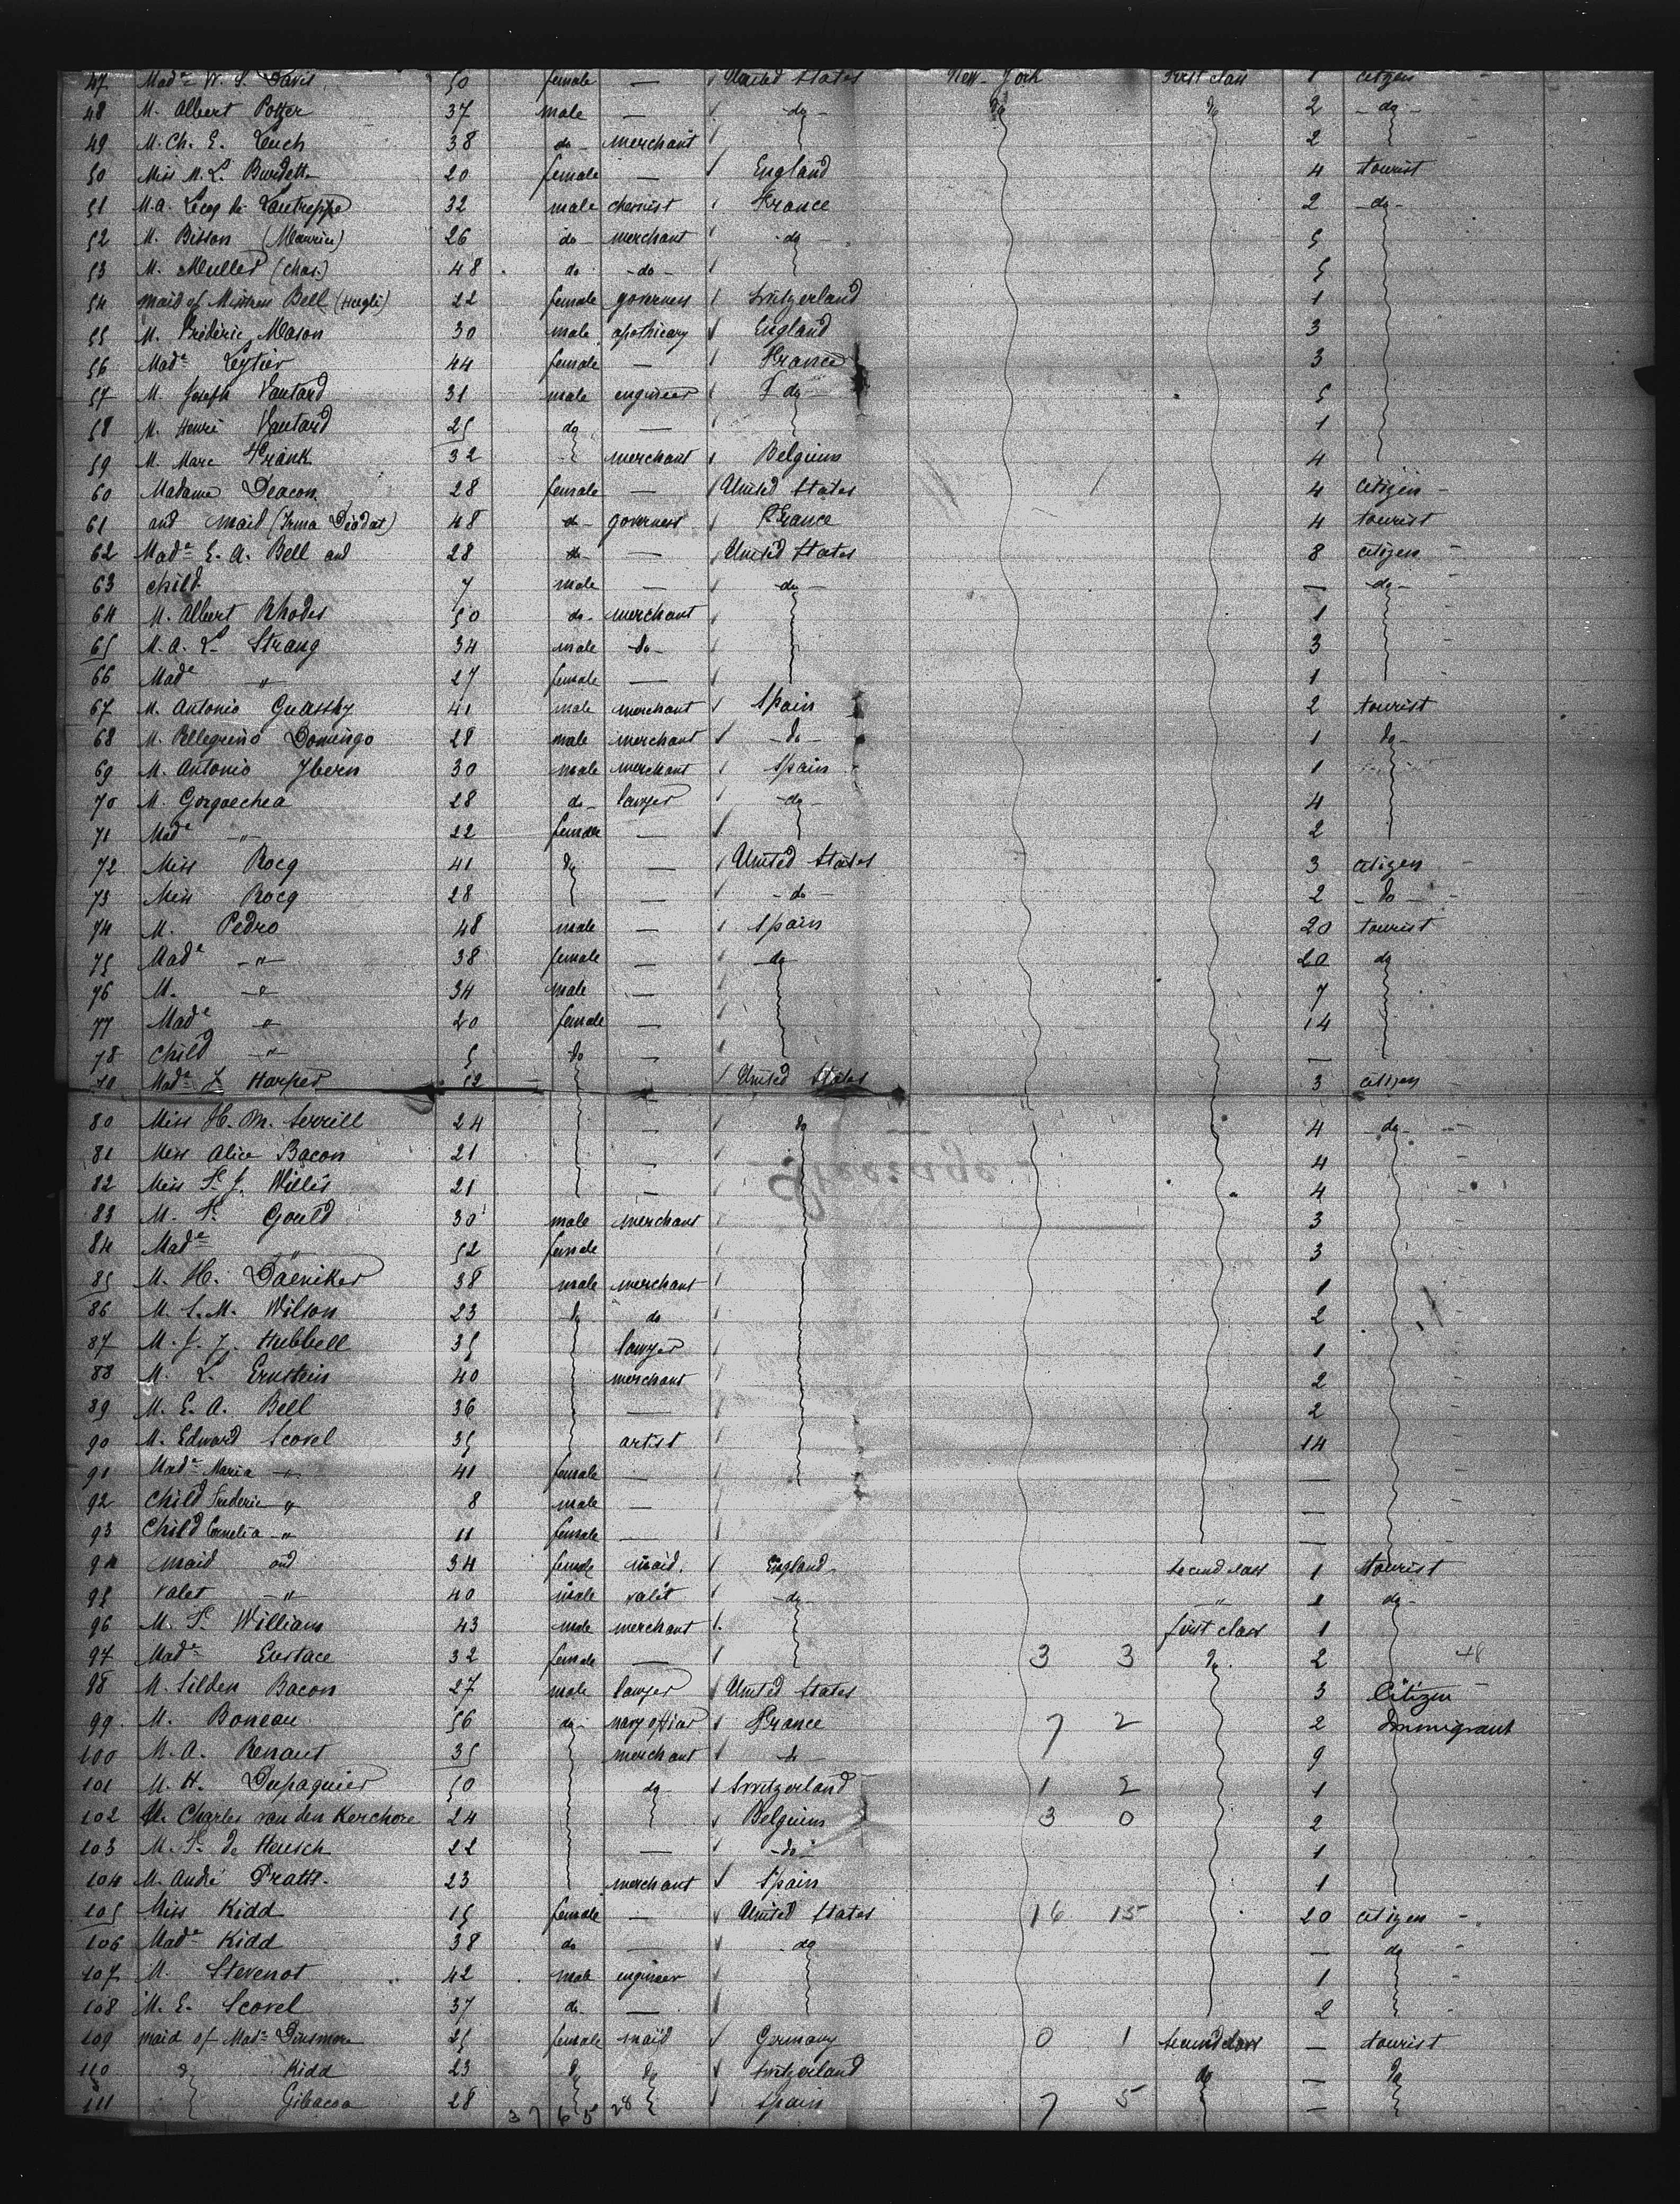 47 Made W. S. Davis 50 female — United States New-York First class 1 citizen
48 M. Albert Potter 37 male — do do do 2 do
49 M. Ch. E. Leuch 38 do merchant 2
50 Miss M. L. Burdett 20 female — England 4 tourist
51 M. A. Lecq de 32 male chemist France 2 do
52 M. Bisson (Maurice) 26 do merchant do 5
53 M. Muller (Chas.) 48 do do 5
54 maid of Bell 22 female governess Switzerland 1
55 M. Fréderic Mason 30 male apothicary England 3
56 Made Leytier 44 female — France 3
57 M. Joseph Vautard 31 male engineer do 5
58 M. Henri Vautard 25 do — 1
59 M. Marc Frank 32 merchant Belgium 4
60 Madame Deacon 28 female — United States 4 citizen
61 and maid (Irma Déodat) 48 do governess France 4 tourist
62 Made E. A. Bell and 28 do — United States 8 citizen
63 child 7 male — do — do
64 M. Albert Rhodes 50 do merchant 1
65 M. A. L. Strang 34 male do 3
66 Made " 27 female — 1
67 M. Antonio 41 male merchant Spain 2 tourist
68 M. Pellegrino Domingo 28 male merchant do 1 do
69 M. Antonio Ybern 30 male merchant Spain 1
70 M. Gorgoechea 28 do lawyer do 4
71 Made " 22 female — 2
72 Miss Rocq 41 do — United States 3 citizen
73 Miss Rocq 28 — do 2 do
74 M. Pedro 48 male — Spain 20 tourist
75 Made " 38 female — do 20 do
76 M. " 34 male — 7
77 Made " 20 female — 14
78 Child " 5 do — —
79 Made L Harper 52 — United States 3 citizen
80 Miss H. M. Serrill 24 — do 4 do
81 Miss Alice Bacon 21 — 4
82 Miss F. J. Willis 21 — 4
83 M. F. Gould 30 male merchant 3
84 Made " 52 female 3
85 M. H. Daeniker 38 male merchant 1
86 M. S. M. Wilson 23 do do 2
87 M. J. J. Hubbell 35 lawyer 1
88 M. L. Ernstein 40 merchant 2
89 M. E. A. Bell 36 — 2
90 M. Edward Scovel 35 artist 14
91 Made Maria " 41 female — —
92 Child Frederic " 8 male — —
93 Child Cornelia " 11 female — —
94 maid and 34 female maid England second class 1 tourist
95 Valet " 40 male valet do " 1 do
96 M. F. William 43 male merchant first class 1
97 Made Eustace 32 female — 3 3 do 2 48
98 M. Silden Bacon 27 male lawyer United States 3 Citizen
99 M. Boneau 56 do navy officer France 7 2 2 Immigrant
100 M. A. Renaut 35 merchant do 9
101 M. H. Dupaquier 50 do Switzerland 1 2 1
102 M. Charles van den Kerchove 24 Belgium 3 0 2
103 M. F. de Heusch 22 — do 1
104 M. André Pratts 23 merchant Spain 1
105 Miss Kidd 15 female — United States 16 15 20 citizen
106 Made Kidd 38 do — do — do
107 M. Stevenot 42 male engineer 1
108 M. E. Scovel 37 do — 2
109 maid of Made Dinsmore 25 female maid Germany 0 1 second class — tourist
110 do Kidd 23 do do Switzerland do — do
111 Gibacoa 28 Spain 7 5 —
37 65 28